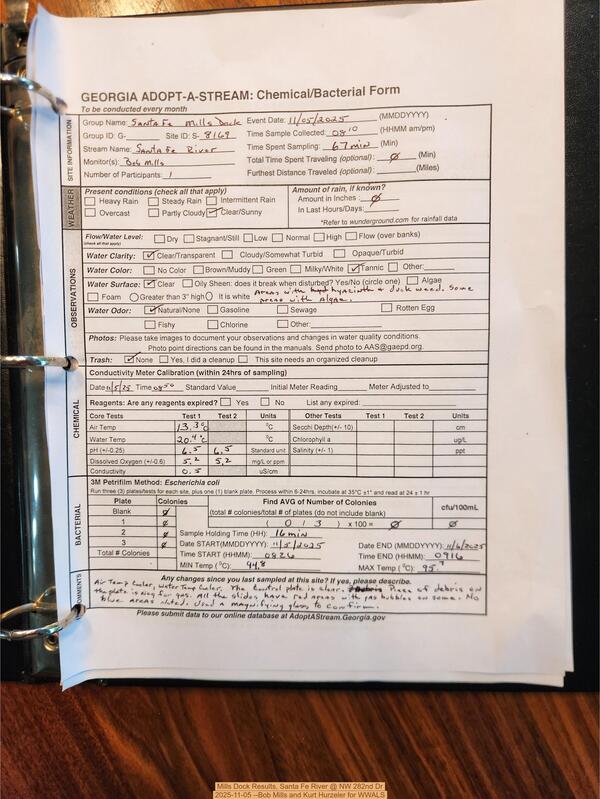 GEORGIA ADOPT-A-STREAM: Chemical/Bacterial Form
To be conducted every month
SITE INFORMATION
Group Name: Santa Fe Mills Dock Event Date: 11/05/2025 (MMDDYYYY)
Group ID: G- Site ID: S- 8169 Time Sample Collected: 0810 (HHMM am/pm)
Stream Name: Santa Fe River Time Spent Sampling: 67 min (Min)
Monitor(s): Bob Mills Total Time Spent Traveling (optional): Ø (Min)
Number of Participants: 1 Furthest Distance Traveled (optional): (Miles)
WEATHER
Present conditions (check all that apply) Amount of rain, if known?
Heavy Rain Steady Rain Intermittent Rain Amount in Inches: Ø
Overcast Partly Cloudy Clear/Sunny In Last Hours/Days:
*Refer to wunderground.com for rainfall data
OBSERVATIONS
Flow/Water Level: Dry Stagnant/Still Low Normal High Flow (over banks)
(check all that apply)
Water Clarity: Clear/Transparent Cloudy/Somewhat Turbid Opaque/Turbid
Water Color: No Color Brown/Muddy Green Milky/White Tannic Other:
Water Surface: Clear Oily Sheen: does it break when disturbed? Yes/No (circle one) Algae
Foam Greater than 3" high It is white Areas with hyacinth + duck weed. Some areas with Algae.
Water Odor: Natural/None Gasoline Sewage Rotten Egg
Fishy Chlorine Other:
Photos: Please take images to document your observations and changes in water quality conditions.
Photo point directions can be found in the manuals. Send photo to AAS@gaepd.org.
Trash: None Yes, I did a cleanup This site needs an organized cleanup
CHEMICAL
Conductivity Meter Calibration (within 24hrs of sampling)
Date 11/5/25 Time 0850 Standard Value Initial Meter Reading Meter Adjusted to
Reagents: Are any reagents expired? Yes No List any expired:
Core Tests Test 1 Test 2 Units Other Tests Test 1 Test 2 Units
Air Temp 13.3°C Secchi Depth(+/- 10) cm
Water Temp 20.4°C Chlorophyll a ug/L
pH (+/-0.25) 6.5 6.5 Standard unit Salinity (+/- 1) ppt
Dissolved Oxygen (+/-0.6) 5.2 5.2 mg/L or ppm
Conductivity 0.5 uS/cm
BACTERIAL
3M Petrifilm Method: Escherichia coli
Run three (3) plates/tests for each site, plus one (1) blank plate. Process within 6-24hrs, incubate at 35°C ±1° and read at 24 ± 1 hr
Plate Colonies Find AVG of Number of Colonies
Blank Ø (total # colonies/total # of plates (do not include blank) cfu/100mL
1 Ø ( 0 / 3 ) x 100 = Ø Ø
2 Ø Sample Holding Time (HH): 16 min
3 Ø Date START(MMDDYYYY): 11/5/2025 Date END (MMDDYYYY): 11/6/2025
Total # Colonies Time START (HHMM): 0826 Time END (HHMM): 0916
MIN Temp (°C): 94.8 MAX Temp (°C): 95.7
COMMENTS
Any changes since you last sampled at this site? If yes, please describe.
Air Temp Cooler, Water Temp Cooler. The Control plate is clear. Piece of debris on
the plate is ring for gas. All the slides have red areas with gas bubbles on some. No
blue areas noted. Used a magnifying glass to confirm.
Please submit data to our online database at AdoptAStream.Georgia.gov
Mills Dock Results, Santa Fe River @ NW 282nd Dr
2025-11-05 --Bob Mills and Kurt Hurzeler for WWALS